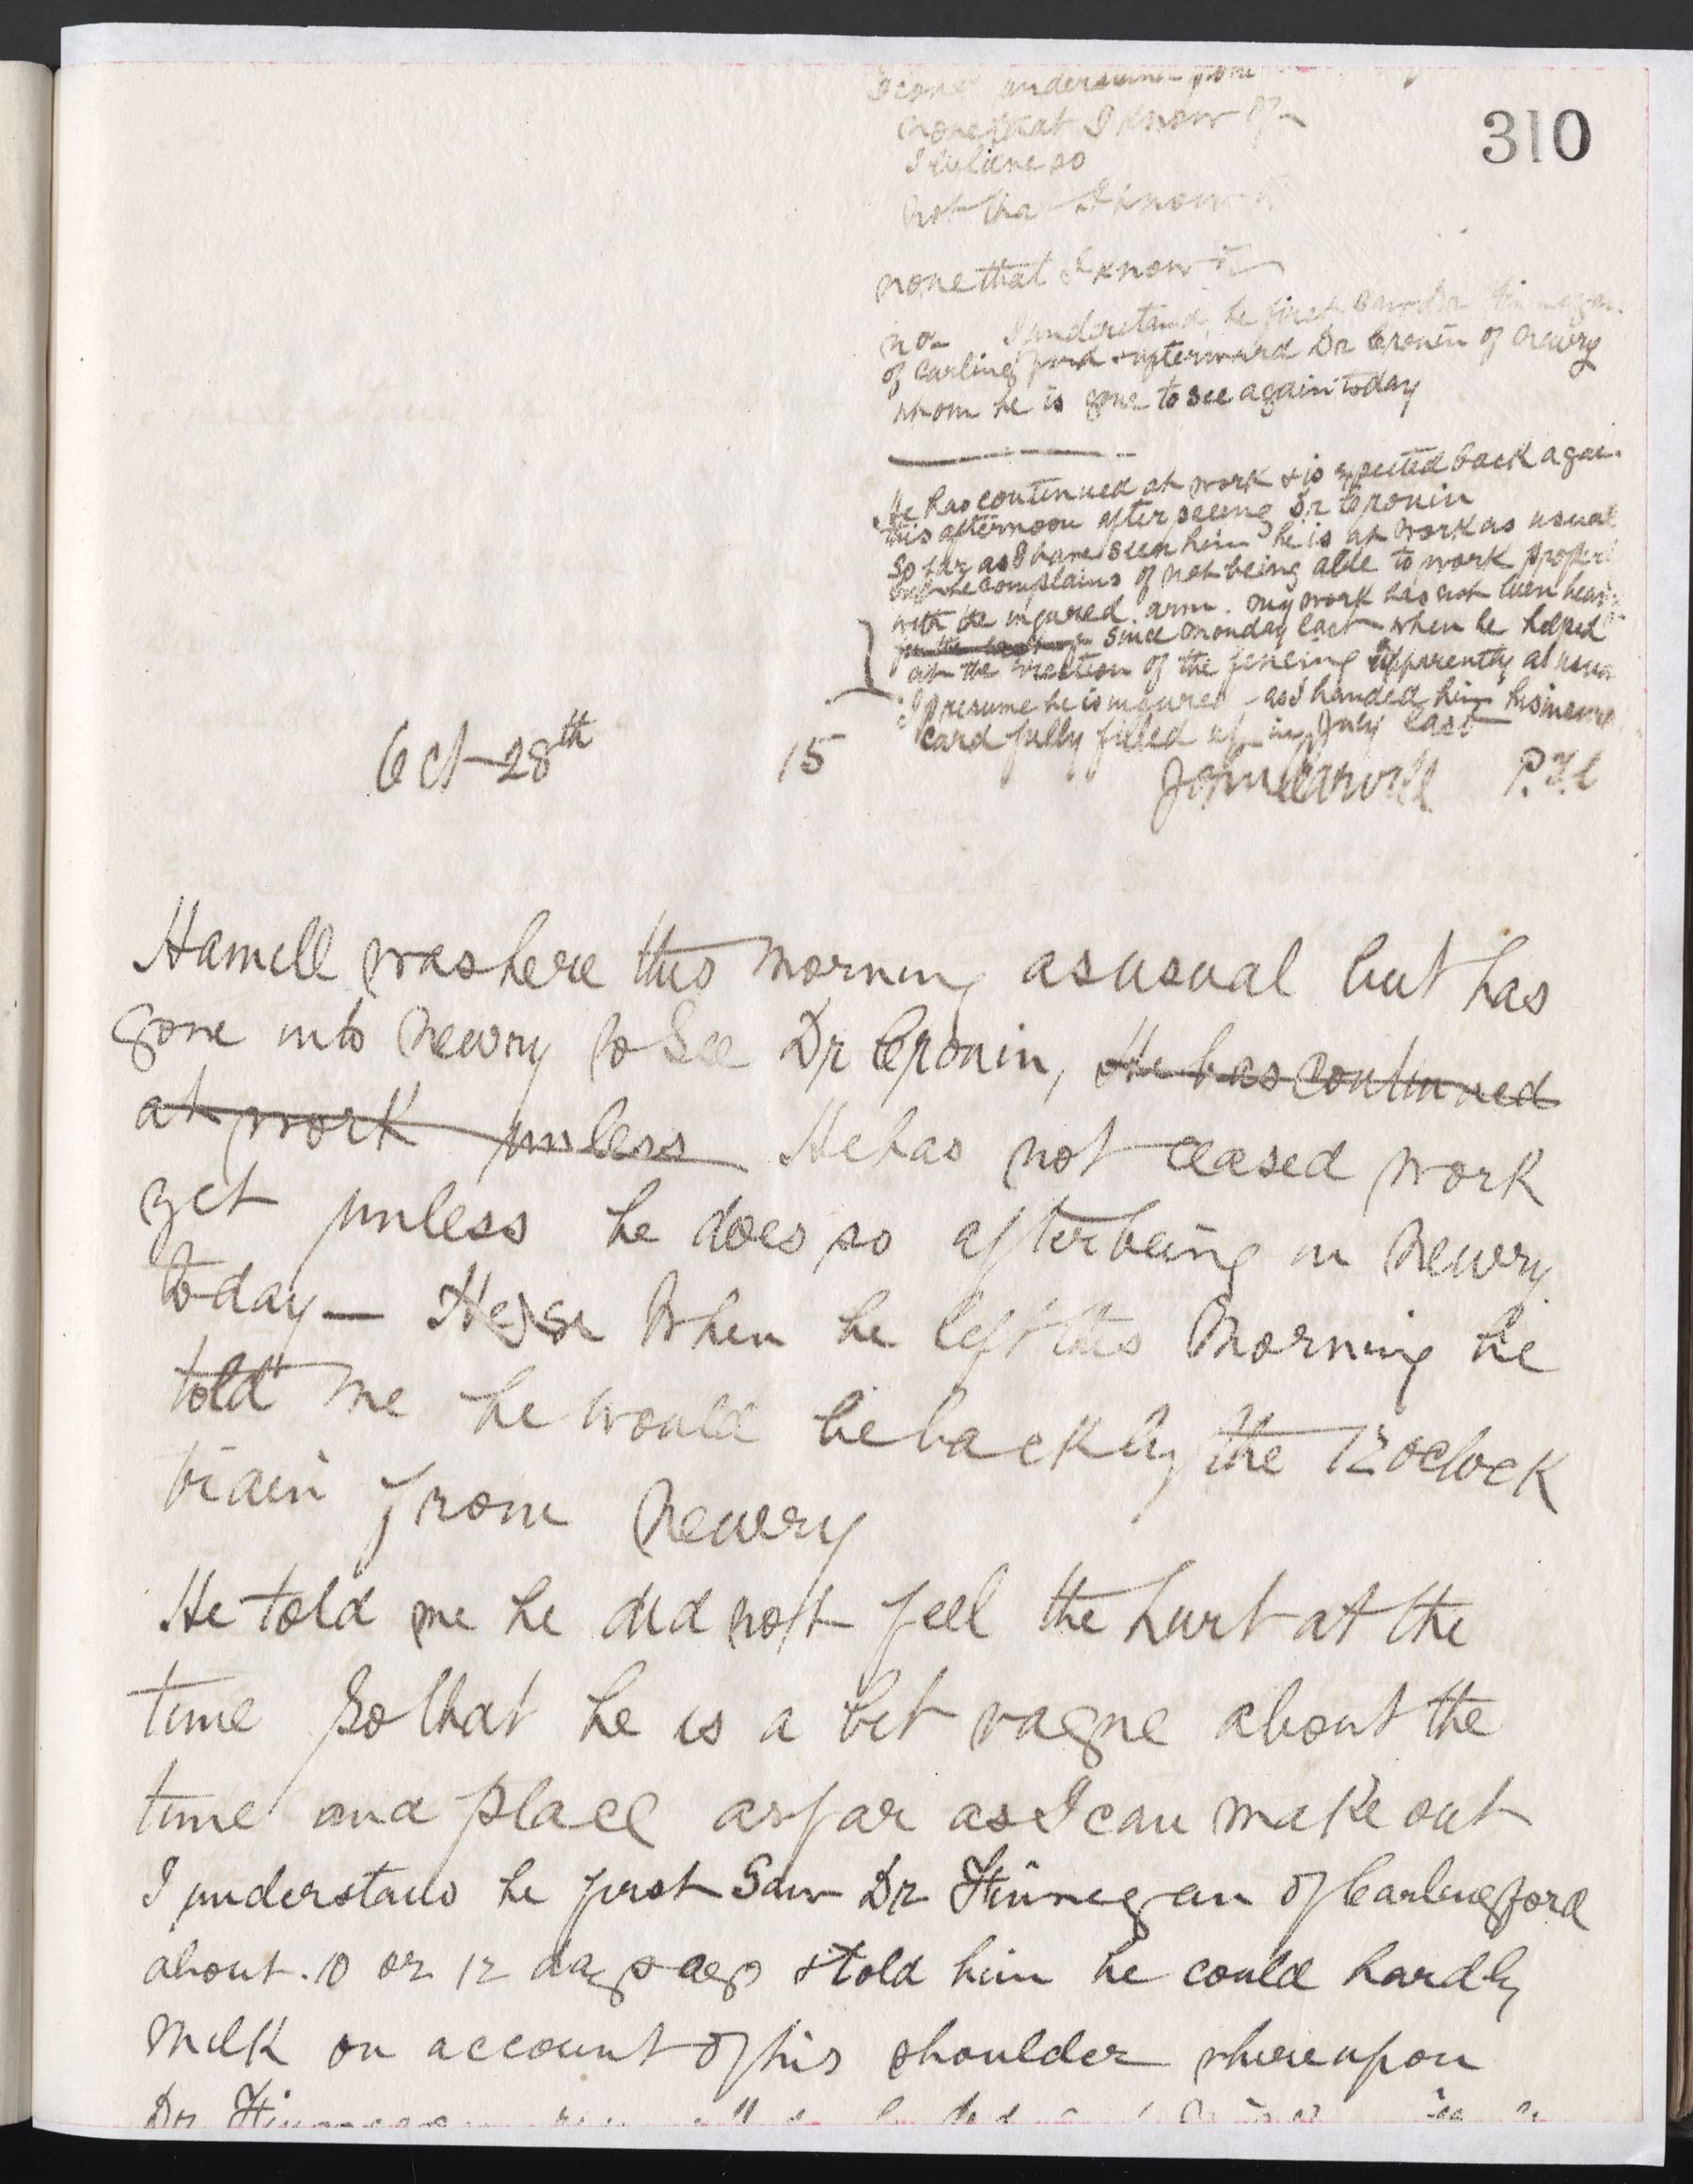 310
none that I know of
I believe so
not that I know
none that I know of
no I understand he first saw Dr Finnegan
of Carlingford & afterward Dr Cronin of Newry
whom he is gone to see again today
He has continued at work & is expected back again
this afternoon after seeing Dr Cronin
So far as I have seen him he is at work as usual
but he complains of not being able to work properly
with the injured arm. My work has not been heavy
since Monday last when he helped
at the erection of the fencing apparently as usual
I presume he is insured as I handed him his insurance
card fully filled up in July last
Oct 28th 15 P.T.O
Hamill was here this morning as usual but has
gone into Newry to see Dr Cronin, He has continued
at work unless He has not ceased work
yet unless he does so after being in Newry
today — He When he left this morning he
told me he would be back by the 12 oclock
train from Newry
He told me he did not feel the hurt at the
time so that he is a bit vague about the
time and place as far as I can make out
I understand he first saw Dr Finnegan of Carlingford
about 10 or 12 days ago & told him he could hardly
milk on account of his shoulder whereupon
Dr